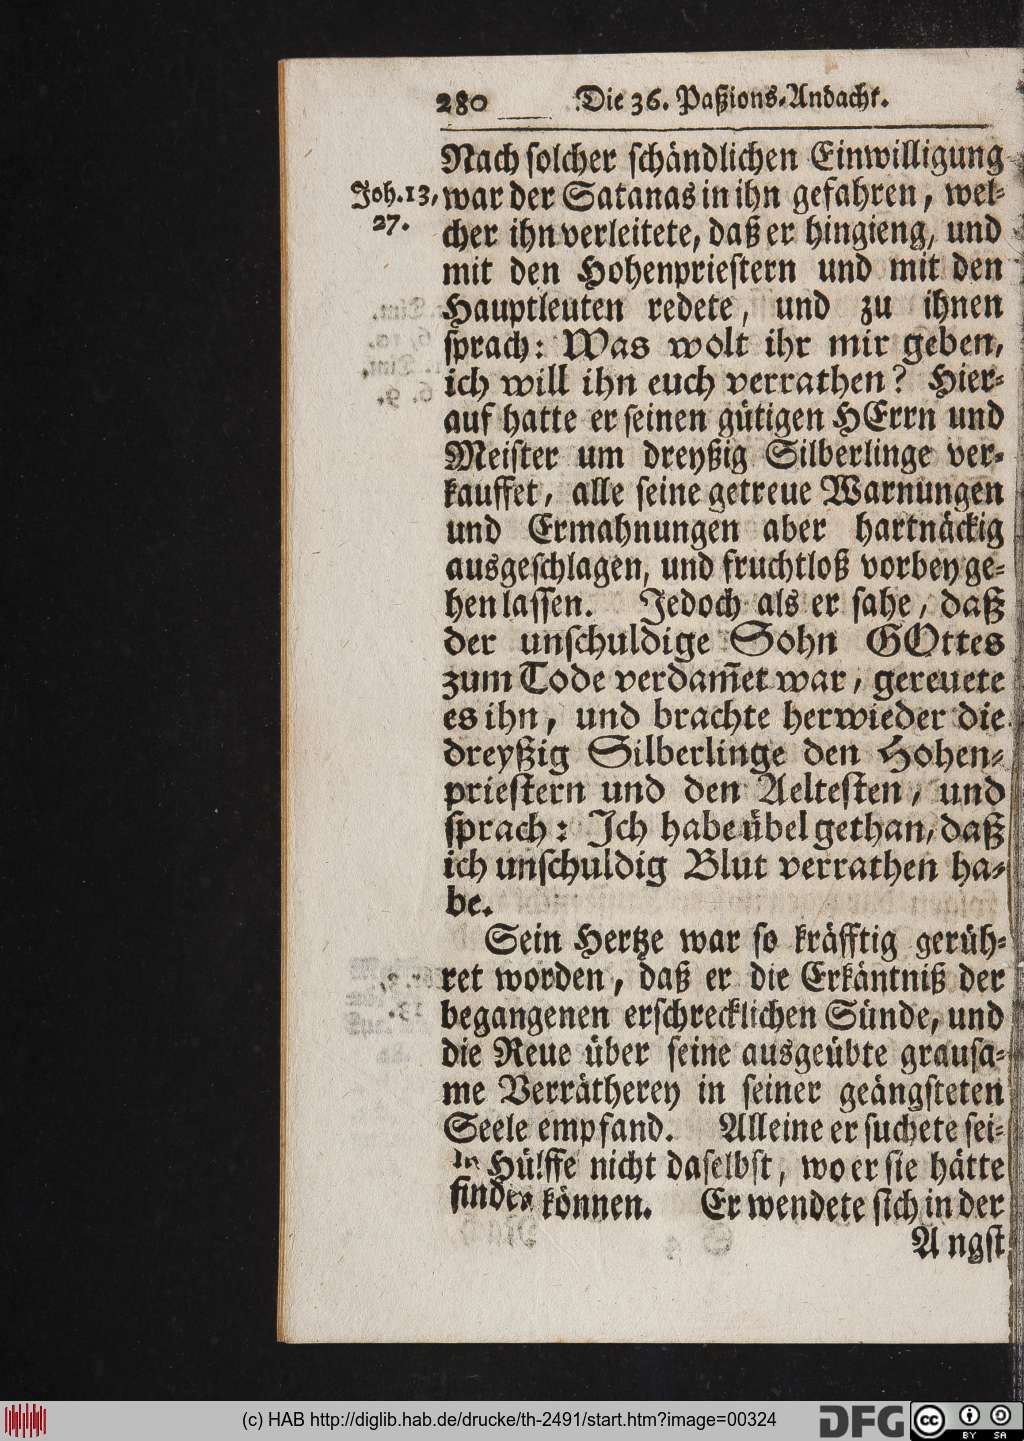 280 Die 36. Paßions-Andacht.
Nach solcher schändlichen Einwilligung
Joh. 13, war der Satanas in ihn gefahren, wel-
27. cher ihn verleitete, daß er hingieng, und
mit den Hohenpriestern und mit den
Hauptleuten redete, und zu ihnen
sprach: Was wolt ihr mir geben,
ich will ihn euch verrathen? Hier-
auf hatte er seinen gütigen HErrn und
Meister um dreyßig Silberlinge ver-
kauffet, alle seine getreue Warnungen
und Ermahnungen aber hartnäckig
ausgeschlagen, und fruchtloß vorbey ge-
hen lassen. Jedoch als er sahe, daß
der unschuldige Sohn GOttes
zum Tode verdam̄et war, gereuete
es ihn, und brachte herwieder die
dreyßig Silberlinge den Hohen-
priestern und den Aeltesten, und
sprach: Ich habe übel gethan, daß
ich unschuldig Blut verrathen ha-
be.
Sein Hertze war so kräfftig gerüh-
ret worden, daß er die Erkäntniß der
begangenen erschrecklichen Sünde, und
die Reue über seine ausgeübte grausa-
me Verrätherey in seiner geängsteten
Seele empfand. Alleine er suchete sei-
Hülffe nicht daselbst, wo er sie hätte
finden können. Er wendete sich in der
Angst
(c) HAB http://diglib.hab.de/drucke/th-2491/start.htm?image=00324
DFG
cc BY SA